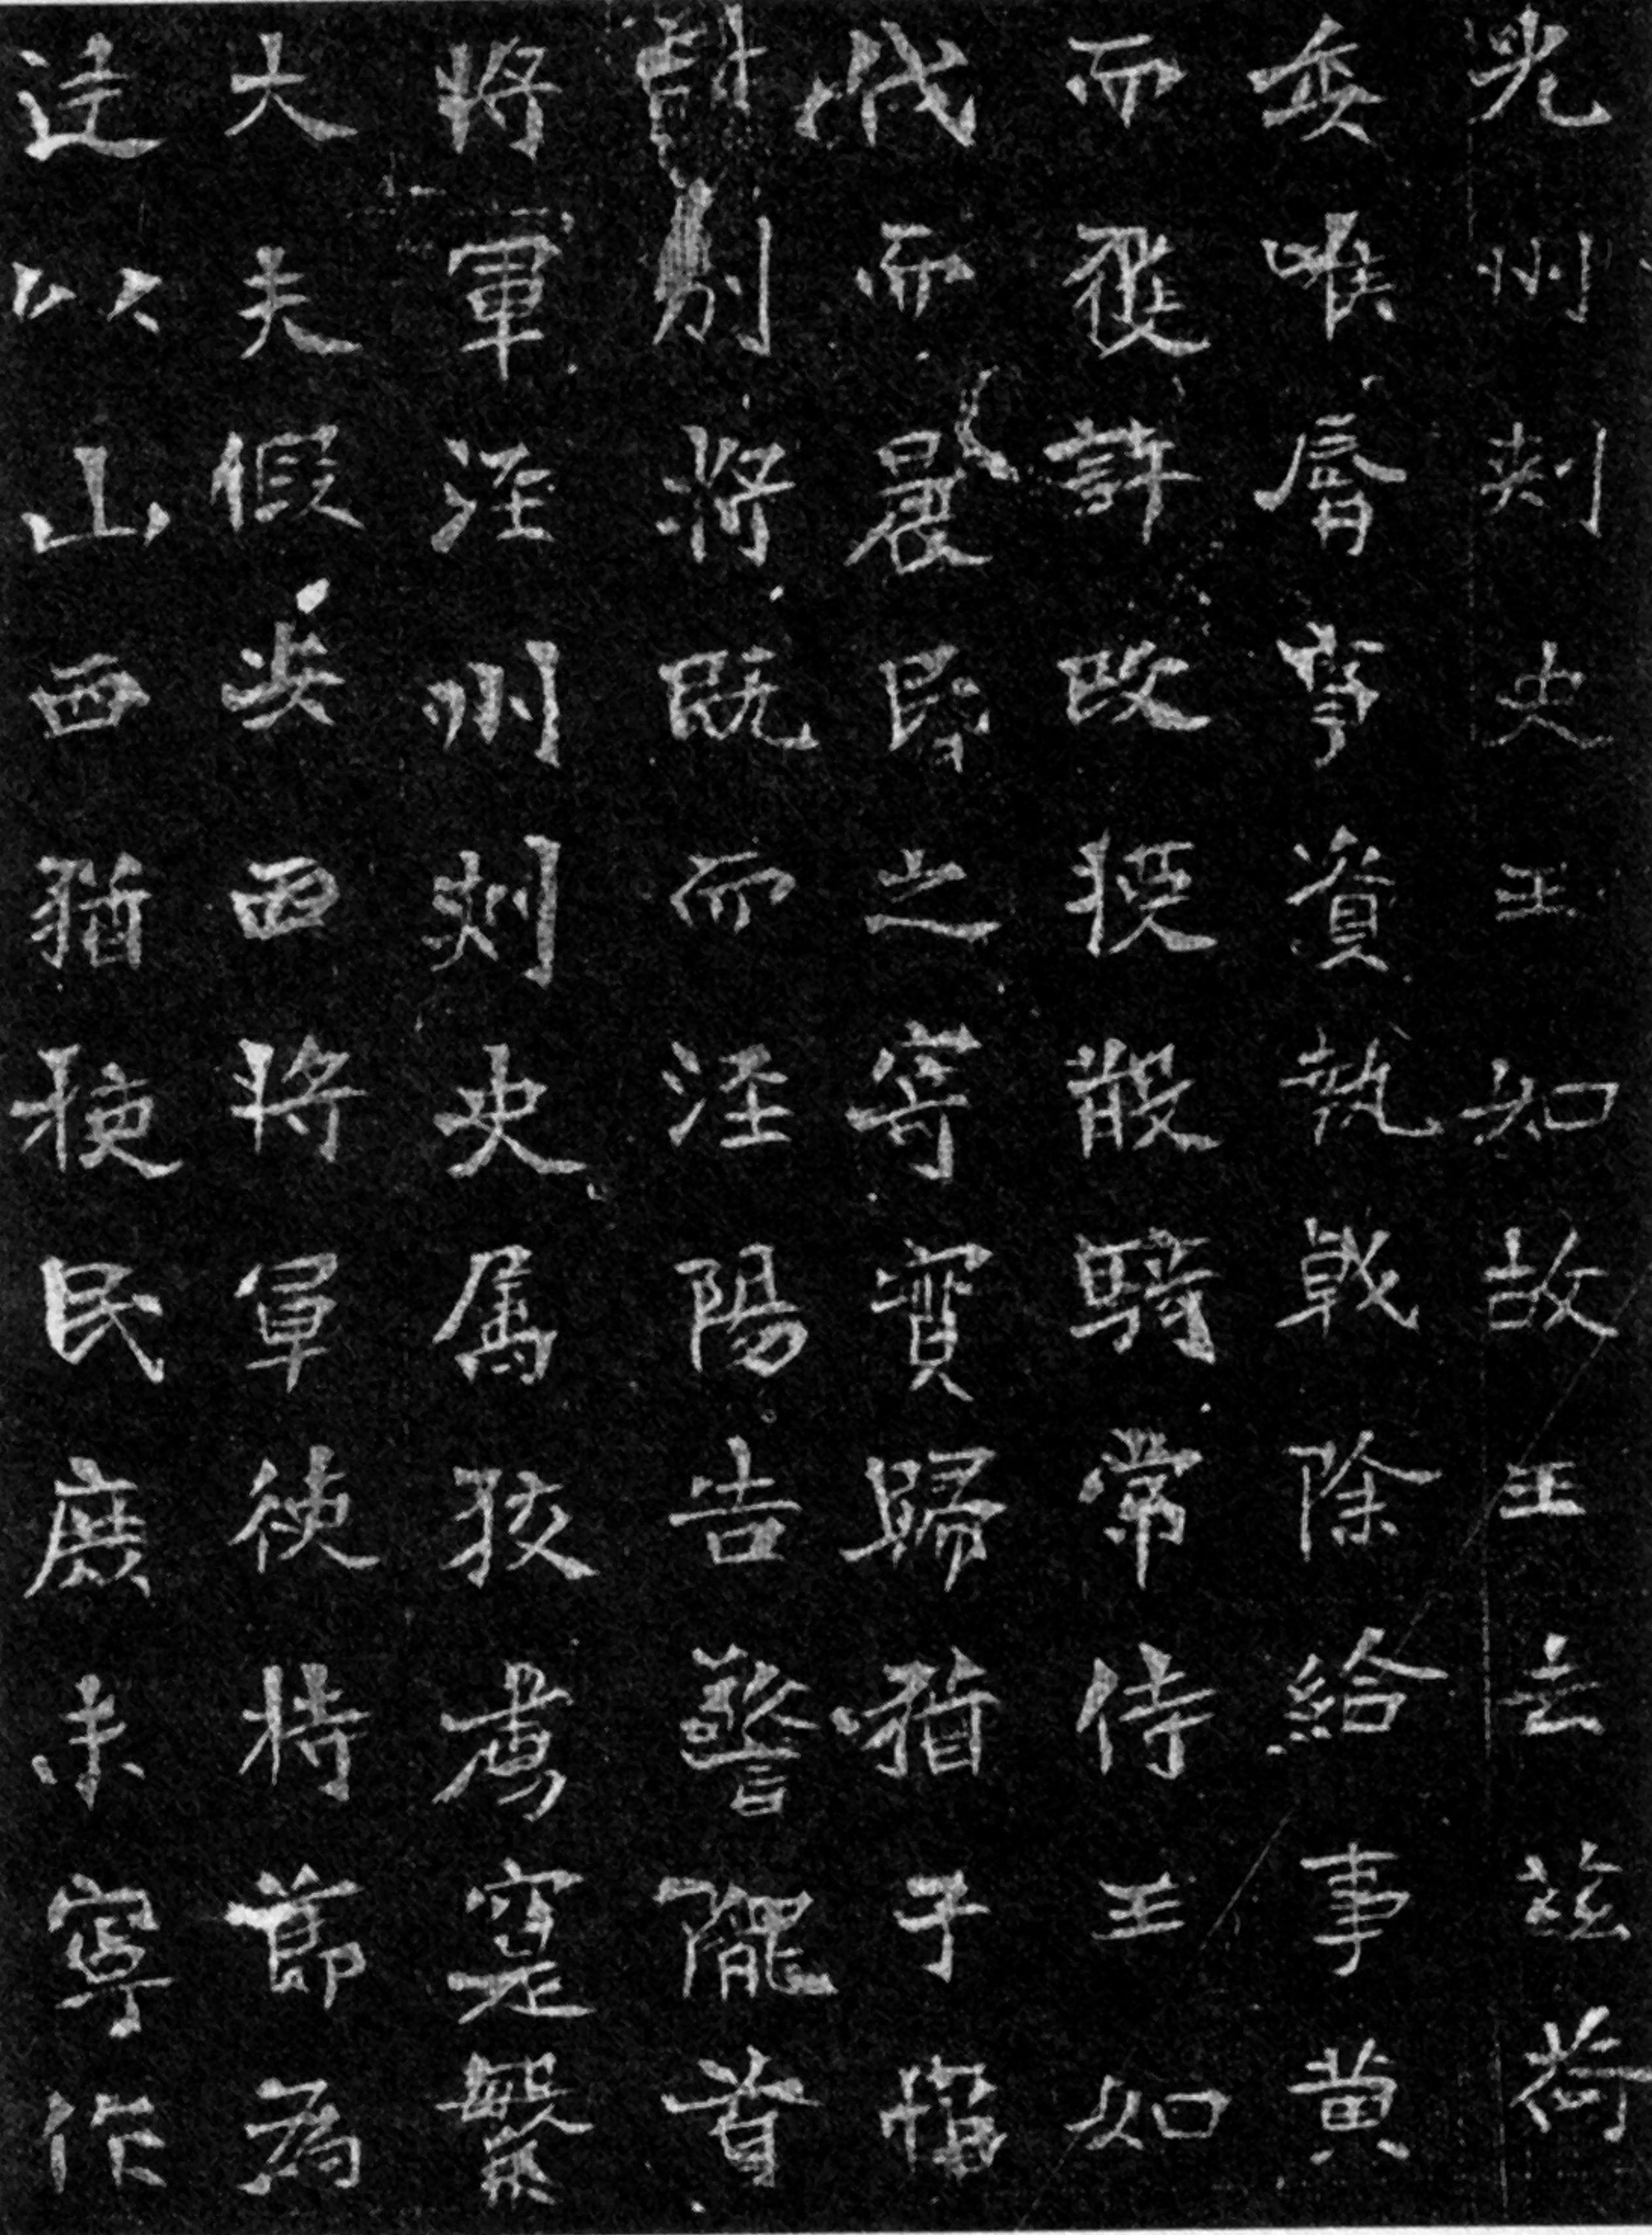 光州刺史王如故王去茲荷
委喉脣事資執戟除給事黃
而復許改授散騎常侍王如
而晨昏之寄實歸猶子
別將既而涇陽告警隴首
將軍涇州刺史屬狡虜寔繁
大夫假安西將軍使持節為
以山西猶梗民庶未寧作